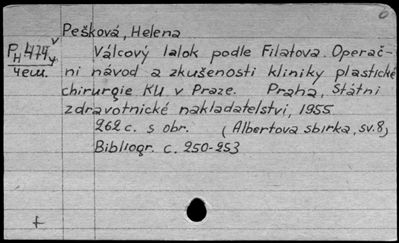 Pešková, Helena
PH474 v/y Válcový lalok podle Filatova. Operač-
чеш. ni návod a zkušenosti kliniky plastické
chirurgie KU v Praze. Praha, Státni
zdravotnické nakladatelstvi, 1955
262 c. s obr. (Albertova sbirka, sv.8)
Bibliogr. c. 250-253